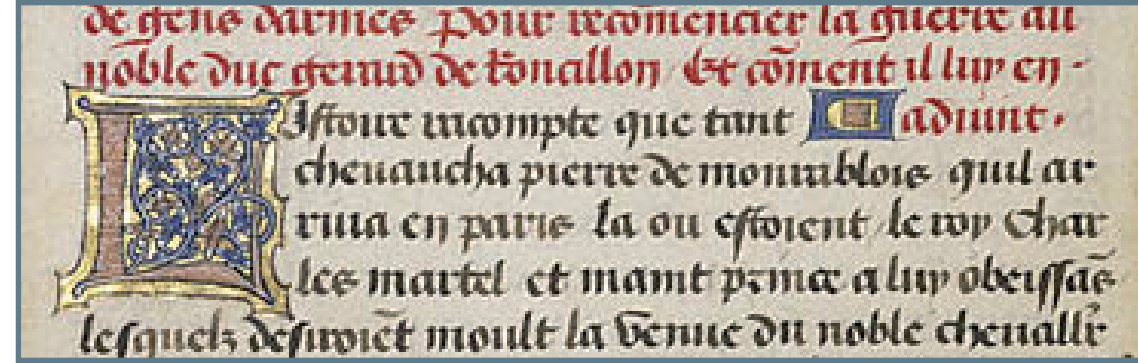 de gens darmes Pour recomencier la guerre au
noble duc gerard de Roncillon Et cōment il luy en-
LIstoire racompte que tant aduint.
cheuaucha pierre de montrablois quil ar
riua en paris la ou estoient le roy Char
les martel et maint prince a luy obeissās
lesquelz desiroiēt moult la venue du noble cheualīr